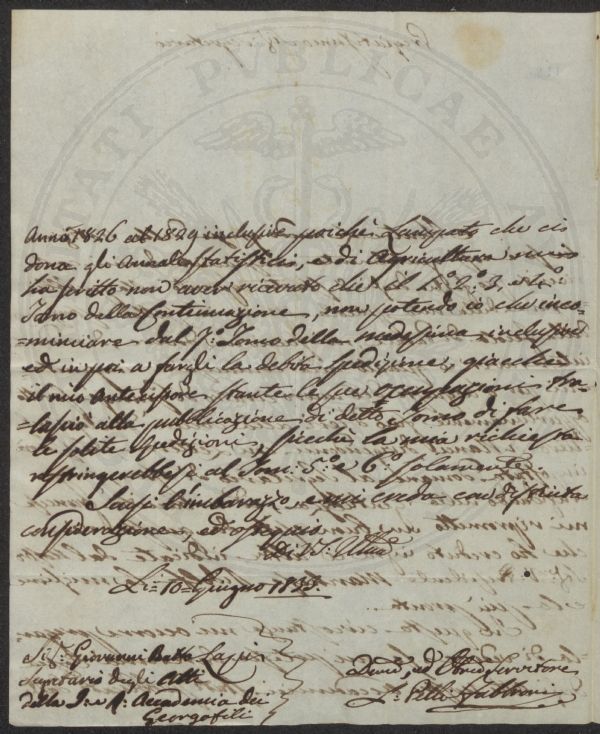 PUBLICAE
TATI
Anno 1826 al 1829 inclusive poichè Lampato che ci
dona gli Annali Statistici, e di Agricoltura
ha scritto non aver ricevuto che il 1.° 2.° 3. e 4.°
Tomo della Continuazione, non potendo io che inco=
=minciare dal 7.° Tomo della medesima inclusive
ed in poi a fargli la debita spedizione, giacchè
il mio antecessore stante le sue occupazioni tra=
=lasciò alla pubblicazione di detto Tomo di fare
le solite spedizioni, sicchè la mia richiesta
restringerebbesi al Tom. 5.° e 6.° solamente
Scusi l'imbarazzo, e mi creda con distinta
considerazione, ed ossequio
Di V. S. Ill.ma
Li = 10 = Giugno
Sig.r Giovanni Batta Lapi
Segretario degli Atti
della I. e R. Accademia dei
Georgofili
Dev.mo ed Obb.mo Servitore
Fabbroni